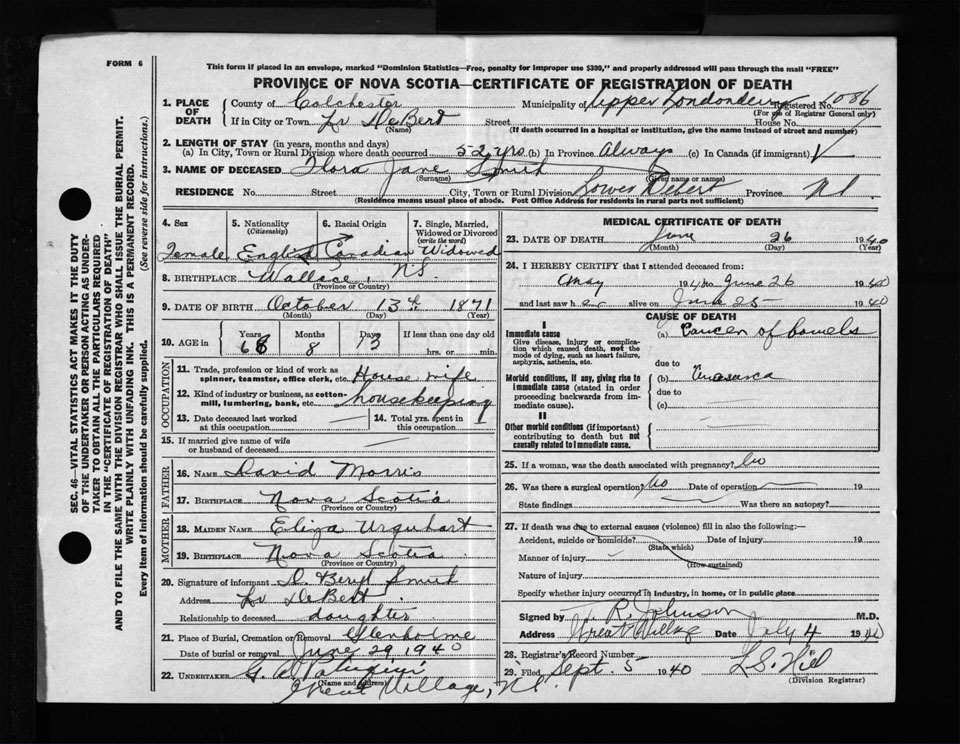 FORM 6
This form if placed in an envelope, marked "Dominion Statistics—Free, penalty for improper use $300," and properly addressed will pass through the mail "FREE"
PROVINCE OF NOVA SCOTIA—CERTIFICATE OF REGISTRATION OF DEATH
1. PLACE OF DEATH County of Colchester Municipality of Upper Londonderry Registered No. 1086
(For use of Registrar General only)
If in City or Town Lr DeBert Street House No.
(Name) (If death occurred in a hospital or institution, give the name instead of street and number)
2. LENGTH OF STAY (in years, months and days)
(a) In City, Town or Rural Division where death occurred 52 yrs (b) In Province Always (c) In Canada (if immigrant)
3. NAME OF DECEASED Flora Jane Smith
(Surname) (Given name or names)
RESIDENCE No. Street City, Town or Rural Division Lower Debert Province N.S.
(Residence means usual place of abode. Post Office Address for residents in rural parts not sufficient)
4. Sex 5. Nationality (Citizenship) 6. Racial Origin 7. Single, Married, Widowed or Divorced (write the word)
Female English Canadian Widowed
8. BIRTHPLACE Wallace, N.S.
(Province or Country)
9. DATE OF BIRTH October 13th 1871
(Month) (Day) (Year)
10. AGE in Years 68 Months 8 Days 13 If less than one day old hrs. or min.
OCCUPATION
11. Trade, profession or kind of work as spinner, teamster, office clerk, etc. House wife
12. Kind of industry or business, as cotton-mill, lumbering, bank, etc. housekeeping
13. Date deceased last worked at this occupation
14. Total yrs. spent in this occupation
15. If married give name of wife or husband of deceased
FATHER
16. NAME David Morris
17. BIRTHPLACE Nova Scotia
(Province or Country)
MOTHER
18. MAIDEN NAME Eliza Urquhart
19. BIRTHPLACE Nova Scotia
(Province or Country)
20. Signature of informant D. Beryl Smith
Address Lr DeBert
Relationship to deceased daughter
21. Place of Burial, Cremation or Removal Glenholme
Date of burial or removal June 29, 1940
22. UNDERTAKER G. A.
(Name and Address)
Great Village, N.S.
MEDICAL CERTIFICATE OF DEATH
23. DATE OF DEATH June 26 1940
(Month) (Day) (Year)
24. I HEREBY CERTIFY that I attended deceased from:
May 1940 to June 26 1940
and last saw her alive on June 25 1940
CAUSE OF DEATH
I
Immediate cause (a) Cancer of bowels
Give disease, injury or complication which caused death, not the mode of dying, such as heart failure, asphyxia, asthenia, etc.
due to
Morbid conditions, if any, giving rise to immediate cause (stated in order proceeding backwards from immediate cause). (b) Anasarca
due to
(c)
II
Other morbid conditions (if important) contributing to death but not causally related to immediate cause.
25. If a woman, was the death associated with pregnancy? No
26. Was there a surgical operation? No Date of operation 19
State findings Was there an autopsy?
27. If death was due to external causes (violence) fill in also the following:—
Accident, suicide or homicide? Date of injury 19
(State which)
Manner of injury
(How sustained)
Nature of injury
Specify whether injury occurred in industry, in home, or in public place
Signed by R. Johnson M.D.
Address Great Village Date July 4 1940
28. Registrar's Record Number
29. Filed Sept. 5 1940 L.S. Hill
(Division Registrar)
SEC. 46—VITAL STATISTICS ACT MAKES IT THE DUTY
OF THE UNDERTAKER OR PERSON ACTING AS UNDER-
TAKER TO OBTAIN ALL THE PARTICULARS REQUIRED
IN THE "CERTIFICATE OF REGISTRATION OF DEATH"
AND TO FILE THE SAME WITH THE DIVISION REGISTRAR WHO SHALL ISSUE THE BURIAL PERMIT.
WRITE PLAINLY WITH UNFADING INK. THIS IS A PERMANENT RECORD.
Every item of information should be carefully supplied. (See reverse side for instructions.)